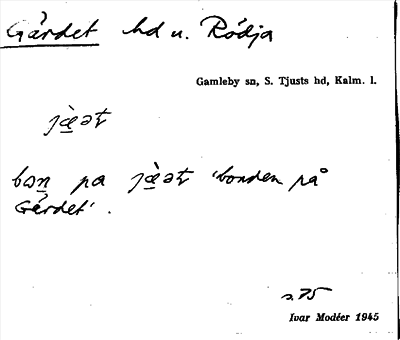 Gärdet hd u. Rödja
Gamleby sn, S. Tjusts hd, Kalm. l.
jæ̀ət
bon pa jæ̀ət 'bonden på
Gärdet'.
s. 75
Ivar Modéer 1945